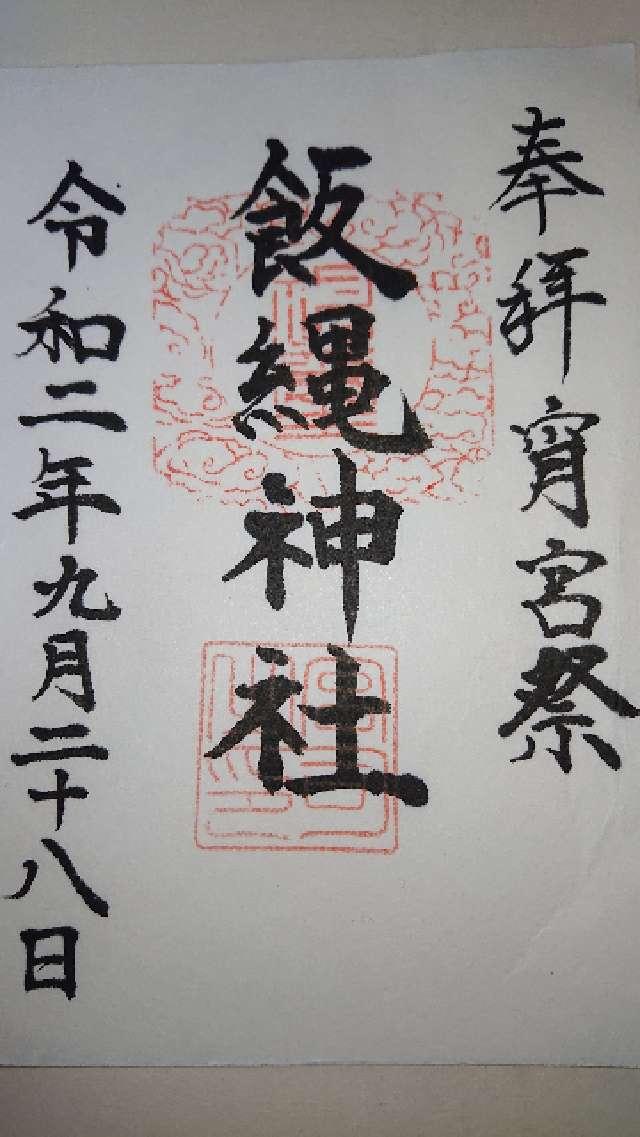 奉拝宵宮祭
飯縄神社
令和二年九月二十八日